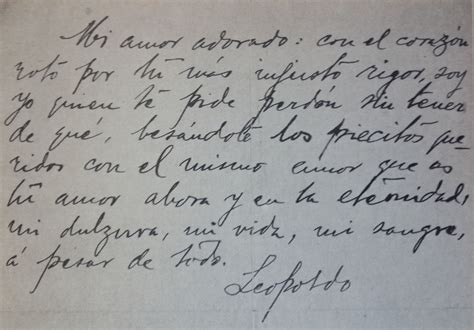 Mi amor adorado: con el corazón
roto por tu más injusto rigor, soy
yo quien te pide perdón sin tener
de qué, besándote los piecitos que
ridos con el mismo amor que es
tu amor ahora y en la eternidad,
mi dulzura, mi vida, mi sangre,
á pesar de todo.
Leopoldo